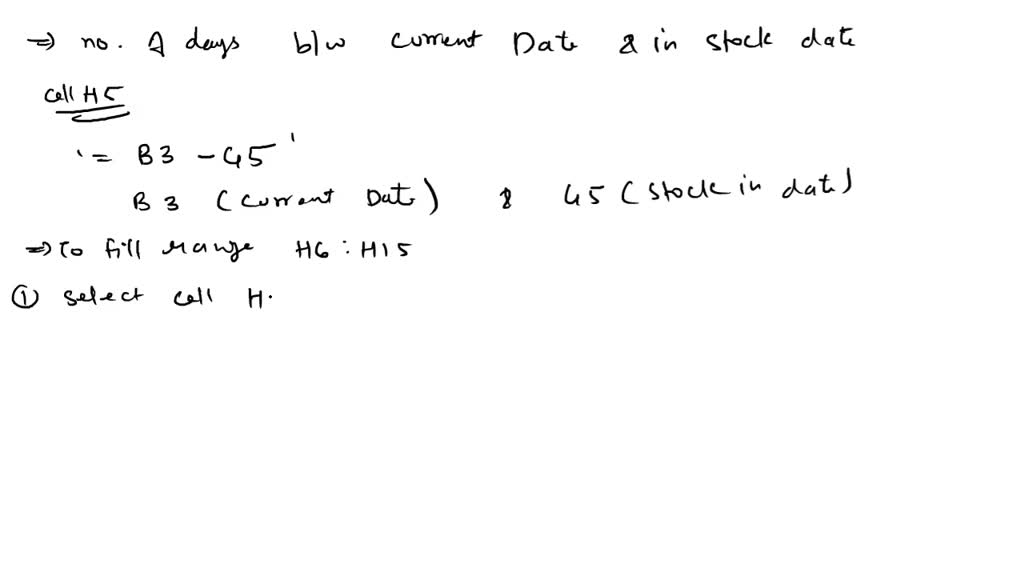 ⇒ no. of days b/w current Date & in stock date
cell H5
'= B3 - G5'
B3 (current Date) & G5 (stock in date)
⇒ to fill range H6 : H15
① select cell H.